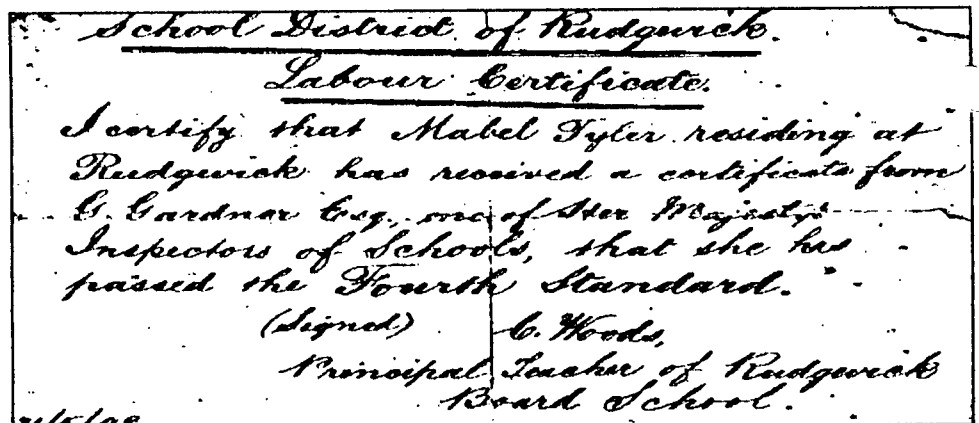 School District of Rudgwick.
Labour Certificate.
I certify that Mabel Tyler residing at
Rudgwick has received a certificate from
G. Gardner Esq., one of Her Majesty's
Inspectors of Schools, that she has
passed the Fourth Standard.
(Signed) C. Woods,
Principal Teacher of Rudgwick
Board School.